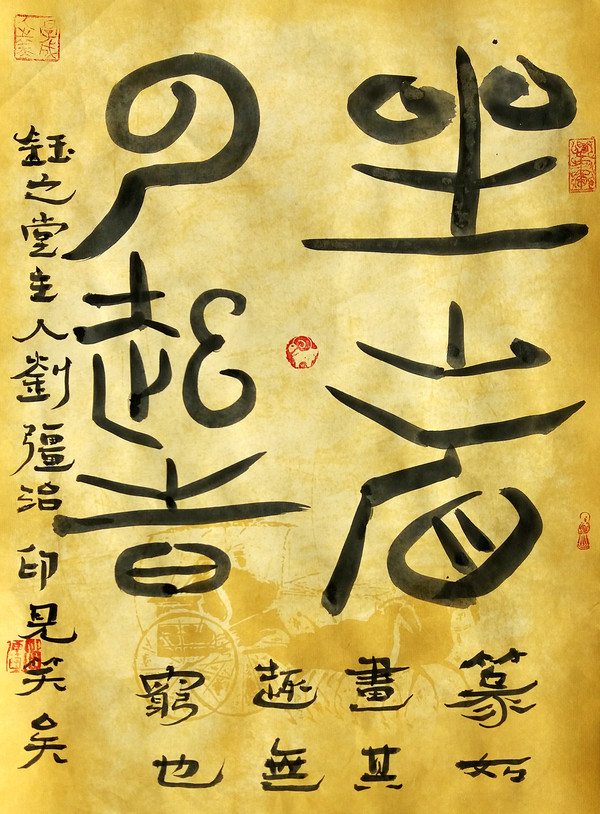 坐看
云起旹
篆如
畫其
趣無
窮也
鈺之堂主人劉彊治印見笑矣